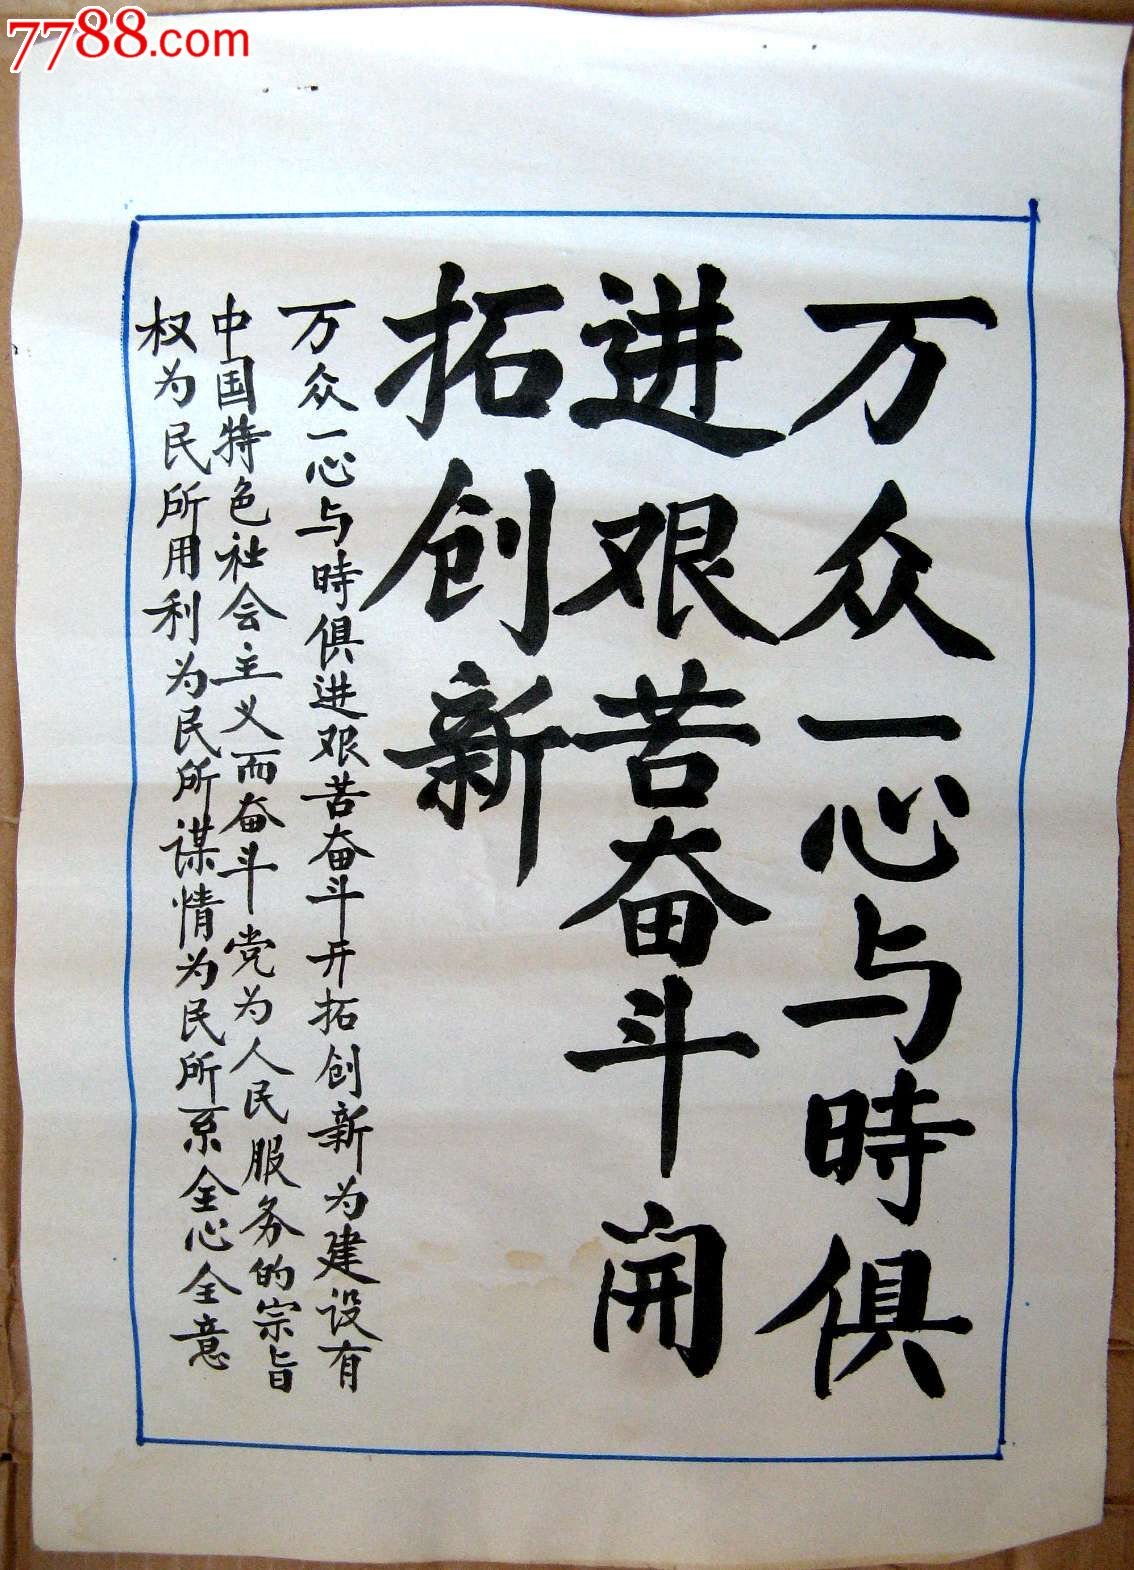 7788.com
万众一心与時俱
进艰苦奋斗开
拓创新
万众一心与時俱进艰苦奋斗开拓创新为建设有
中国特色社会主义而奋斗党为人民服务的宗旨
权为民所用利为民所谋情为民所系全心全意